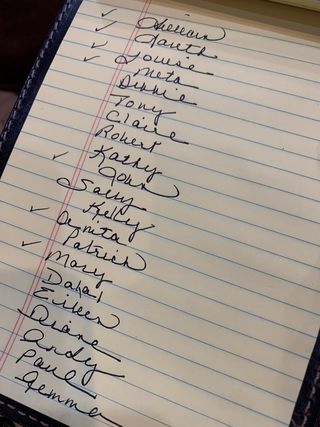 ✓ Lillian
✓ Gareth
✓ Louise
✓ Meta
Debbie
Tony
Claire
Robert
Kathy
✓ John
Sally
Kelly
✓ Danita
Patrick
✓ Mary
Dakai
Eileen
Diane
Andy
Paul
Gemma